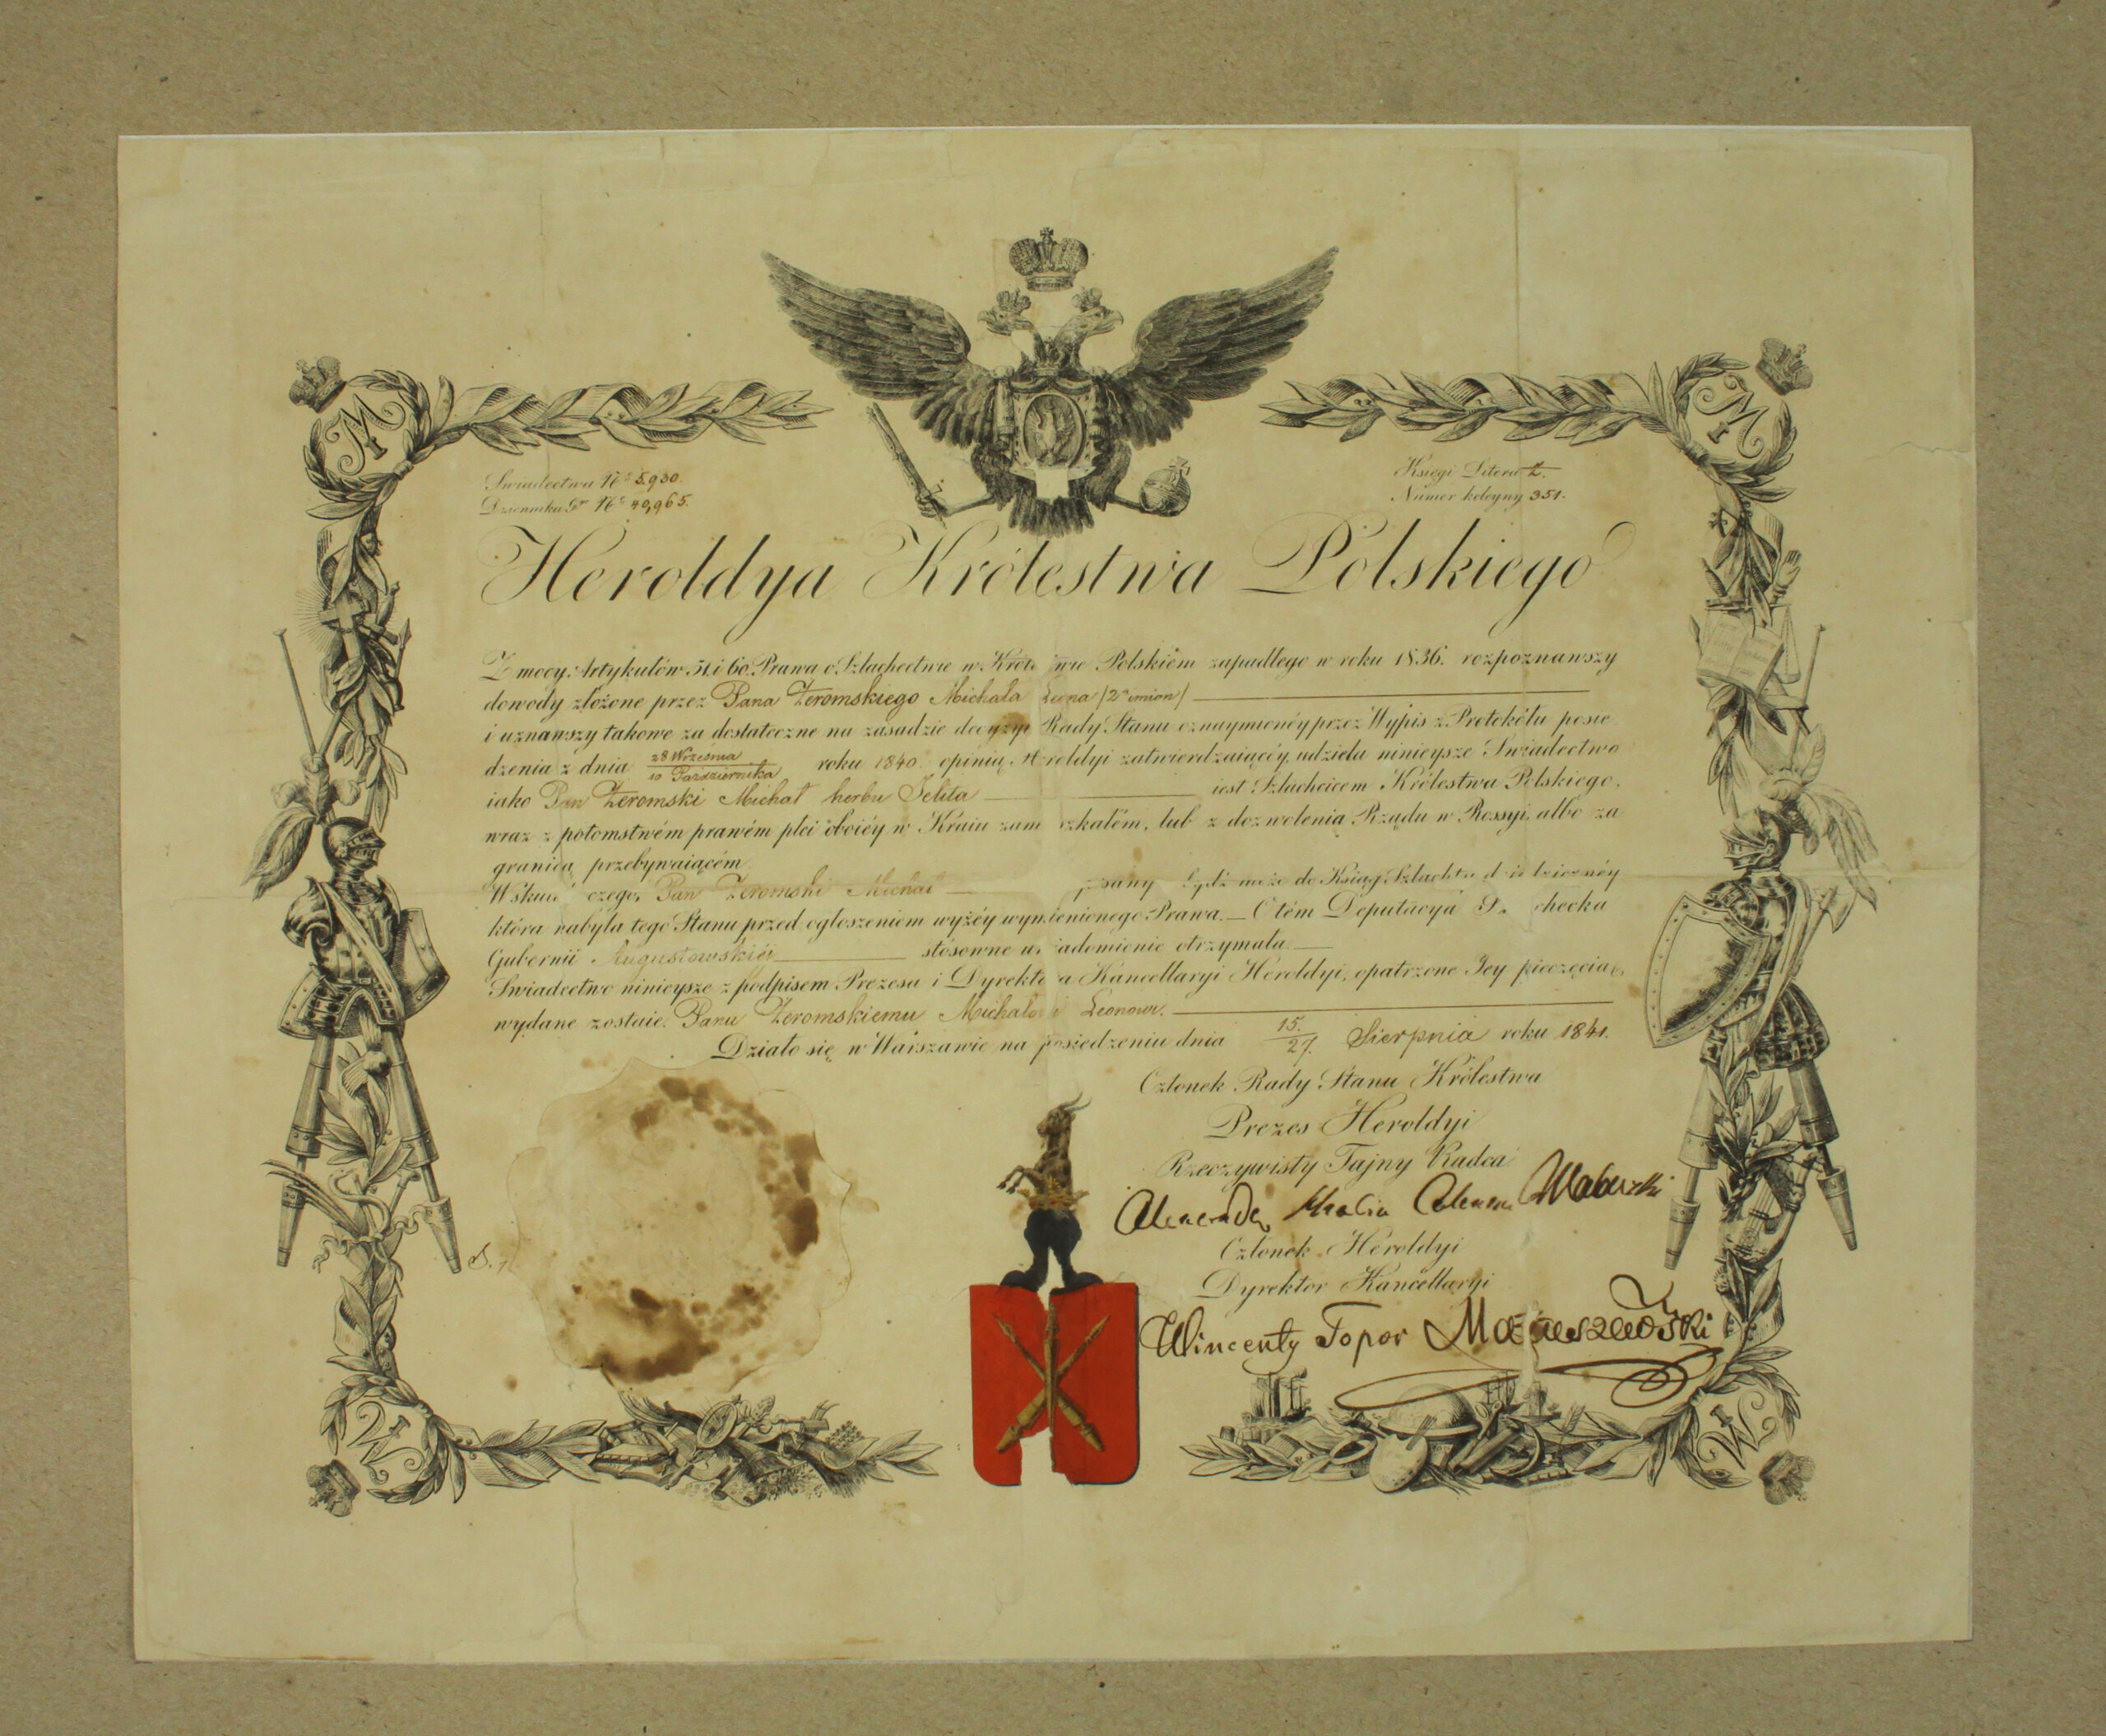 Świadectwa Nº 5,930.
Dziennika Gº Nº 40,965.
Księgi Litera Ż.
Numer koleyny 351.
Heroldya Królestwa Polskiego
Z mocy Artykułów 51. i 60. Prawa o Szlachectwie w Króle wie Polskiém zapadłego w roku 1836. rozpoznawszy
dowody złożone przez Pana Żeromskiego Michała Leona /2ch imion/
i uznawszy takowe za dostateczne na zasadzie decyzyi Rady Stanu oznaymionéy przez Wypis z Protokółu posie
dzenia z dnia 28 Września / 10 Października roku 1840. opinią H roldyi zatwierdzaiącéy, udziela ninieysze Świadectwo
iako Pan Żeromski Michał herbu Jelita iest Szlachcicem Królestwa Polskiego,
wraz z potomstwem prawém płci oboiéy w Kraiu zam szkałém, lub z dozwolenia Rządu w Rossyi, albo za
granicą przebywaiącém.
W sku czego, Pan Żeromski Michał pisany bydź może do Ksiąg Szlachty dziedziczney
która nabyła tego Stanu przed ogłoszeniem wyżéy wymienionego Prawa. — O tém Deputacya S checka
Gubernii Augustowskiéj stosowne u iadomienie otrzymała.
Świadectwo ninieysze z podpisem Prezesa i Dyrektora Kancellaryi Heroldyi, opatrzone Jey pieczęcią,
wydane zostaie. Panu Żeromskiemu Michałowi Leonowi.
Działo się w Warszawie na posiedzeniu dnia 15./27. Sierpnia roku 1841.
Członek Rady Stanu Królestwa
Prezes Heroldyi
Rzeczywisty Tajny Radca
Członek Heroldyi
Dyrektor Kancellaryi
Wincenty Topor
M
M
W
W